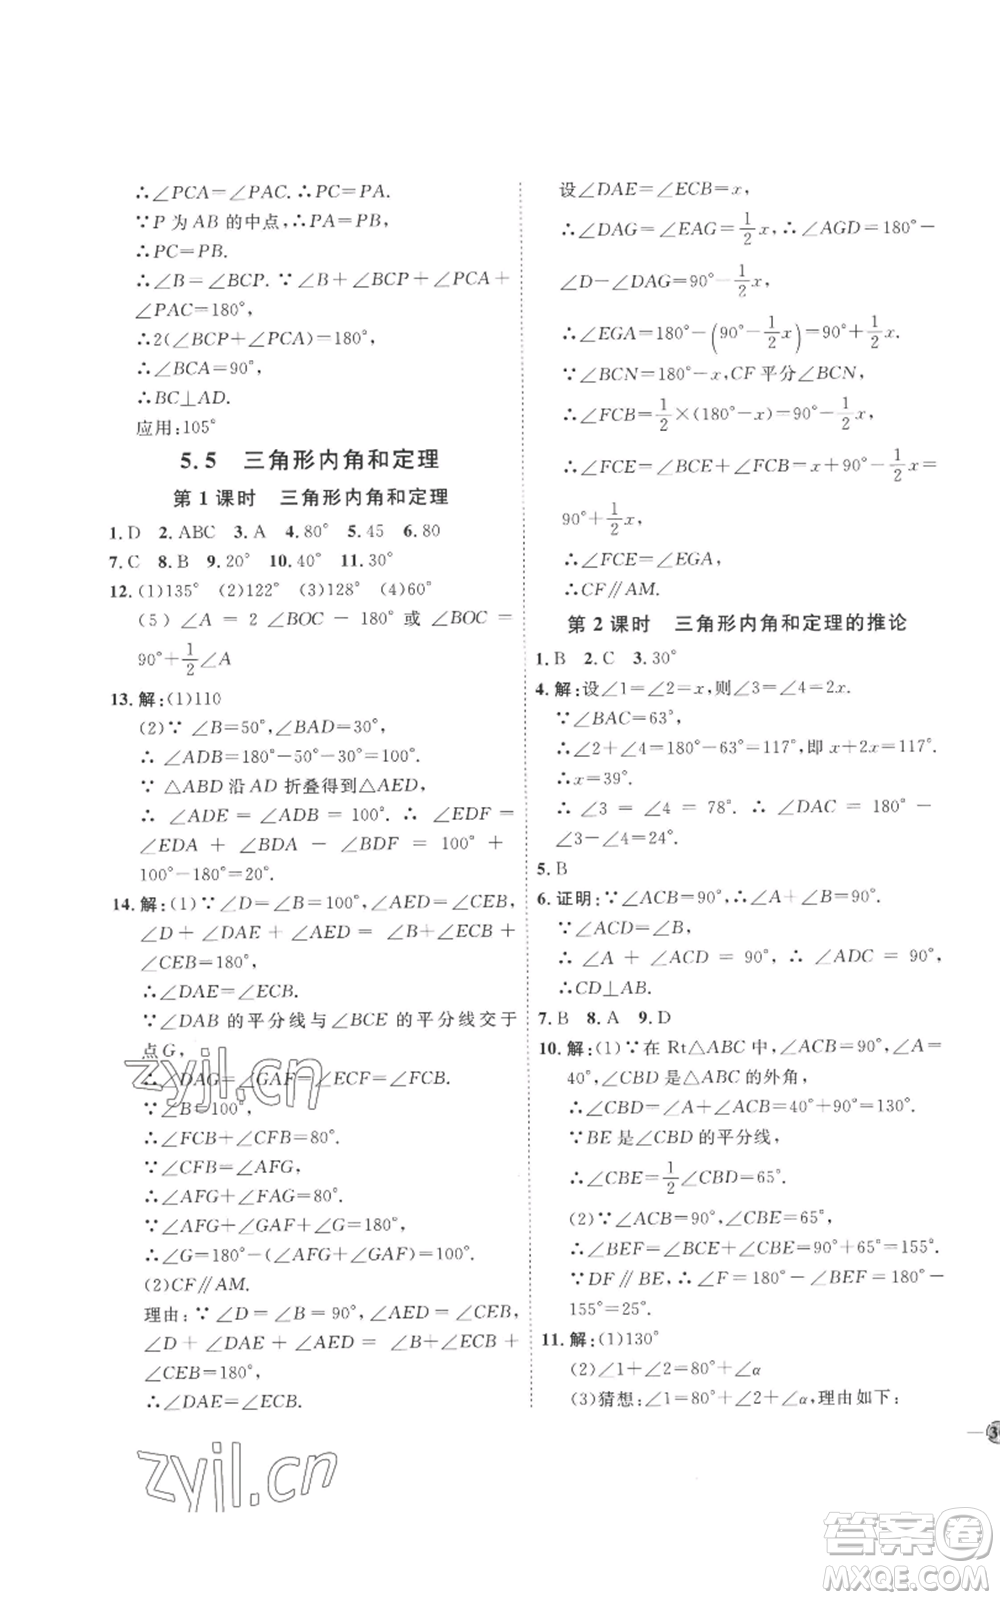 ∴∠PCA=∠PAC.∴PC=PA.
∵P 为 AB 的中点,∴PA=PB,
∴PC=PB.
∴∠B=∠BCP.∵∠B+∠BCP+∠PCA+
∠PAC=180°,
∴2(∠BCP+∠PCA)=180°,
∴∠BCA=90°,
∴BC⊥AD.
应用:105°
5.5 三角形内角和定理
第 1 课时 三角形内角和定理
1.D 2.ABC 3.A 4.80° 5.45 6.80
7.C 8.B 9.20° 10.40° 11.30°
12.(1)135° (2)122° (3)128° (4)60°
(5)∠A=2∠BOC-180°或∠BOC=
90°+1/2∠A
13.解:(1)110
(2)∵∠B=50°,∠BAD=30°,
∴∠ADB=180°-50°-30°=100°.
∵△ABD 沿 AD 折叠得到△AED,
∴∠ADE=∠ADB=100°.∴∠EDF=
∠EDA+∠BDA-∠BDF=100°+
100°-180°=20°.
14.解:(1)∵∠D=∠B=100°,∠AED=∠CEB,
∠D+∠DAE+∠AED=∠B+∠ECB+
∠CEB=180°,
∴∠DAE=∠ECB.
∵∠DAB 的平分线与∠BCE 的平分线交于
点G,
∴∠DAG=∠GAF=∠ECF=∠FCB.
∵∠B=100°,
∴∠FCB+∠CFB=80°.
∵∠CFB=∠AFG,
∴∠AFG+∠FAG=80°.
∵∠AFG+∠GAF+∠G=180°,
∴∠G=180°-(∠AFG+∠GAF)=100°.
(2)CF∥AM.
理由:∵∠D=∠B=90°,∠AED=∠CEB,
∠D+∠DAE+∠AED=∠B+∠ECB+
∠CEB=180°,
∴∠DAE=∠ECB.
设∠DAE=∠ECB=x,
∴∠DAG=∠EAG=1/2x,∴∠AGD=180°-
∠D-∠DAG=90°-1/2x,
∴∠EGA=180°-(90°-1/2x)=90°+1/2x.
∵∠BCN=180°-x,CF 平分∠BCN,
∴∠FCB=1/2×(180°-x)=90°-1/2x,
∴∠FCE=∠FCB+∠ECB=90°-1/2x+x=
90°+1/2x,
∴∠FCE=∠EGA,
∴CF∥AM.
第 2 课时 三角形内角和定理的推论
1.B 2.C 3.30°
4.解:设∠1=∠2=x,则∠3=∠4=2x.
∵∠BAC=63°,
∴∠2+∠4=180°-63°=117°,即 x+2x=117°.
∴x=39°.
∴∠3=∠4=78°.∴∠DAC=180°-
∠3-∠4=24°.
5.B
6.证明:∵∠ACB=90°,∴∠A+∠B=90°.
∵∠ACD=∠B,
∴∠A+∠ACD=90°,∴∠ADC=90°,
∴CD⊥AB.
7.B 8.A 9.D
10.解:(1)∵在 Rt△ABC 中,∠ACB=90°,∠A=
40°,∠CBD 是△ABC 的外角,
∴∠CBD=∠A+∠ACB=40°+90°=130°.
∵BE 是∠CBD 的平分线,
∴∠CBE=1/2∠CBD=65°.
(2)∵∠ACB=90°,∠CBE=65°,
∴∠BEF=∠BCE+∠CBE=90°+65°=155°.
∵DF∥BE,∴∠F=180°-∠BEF=180°-
155°=25°.
11.解:(1)130°
(2)∠1+∠2=80°+∠α
(3)猜想:∠1=80°+∠2+∠α,理由如下:
zyjl.cn
zyjl.cn
答案卷
MXQE.COM